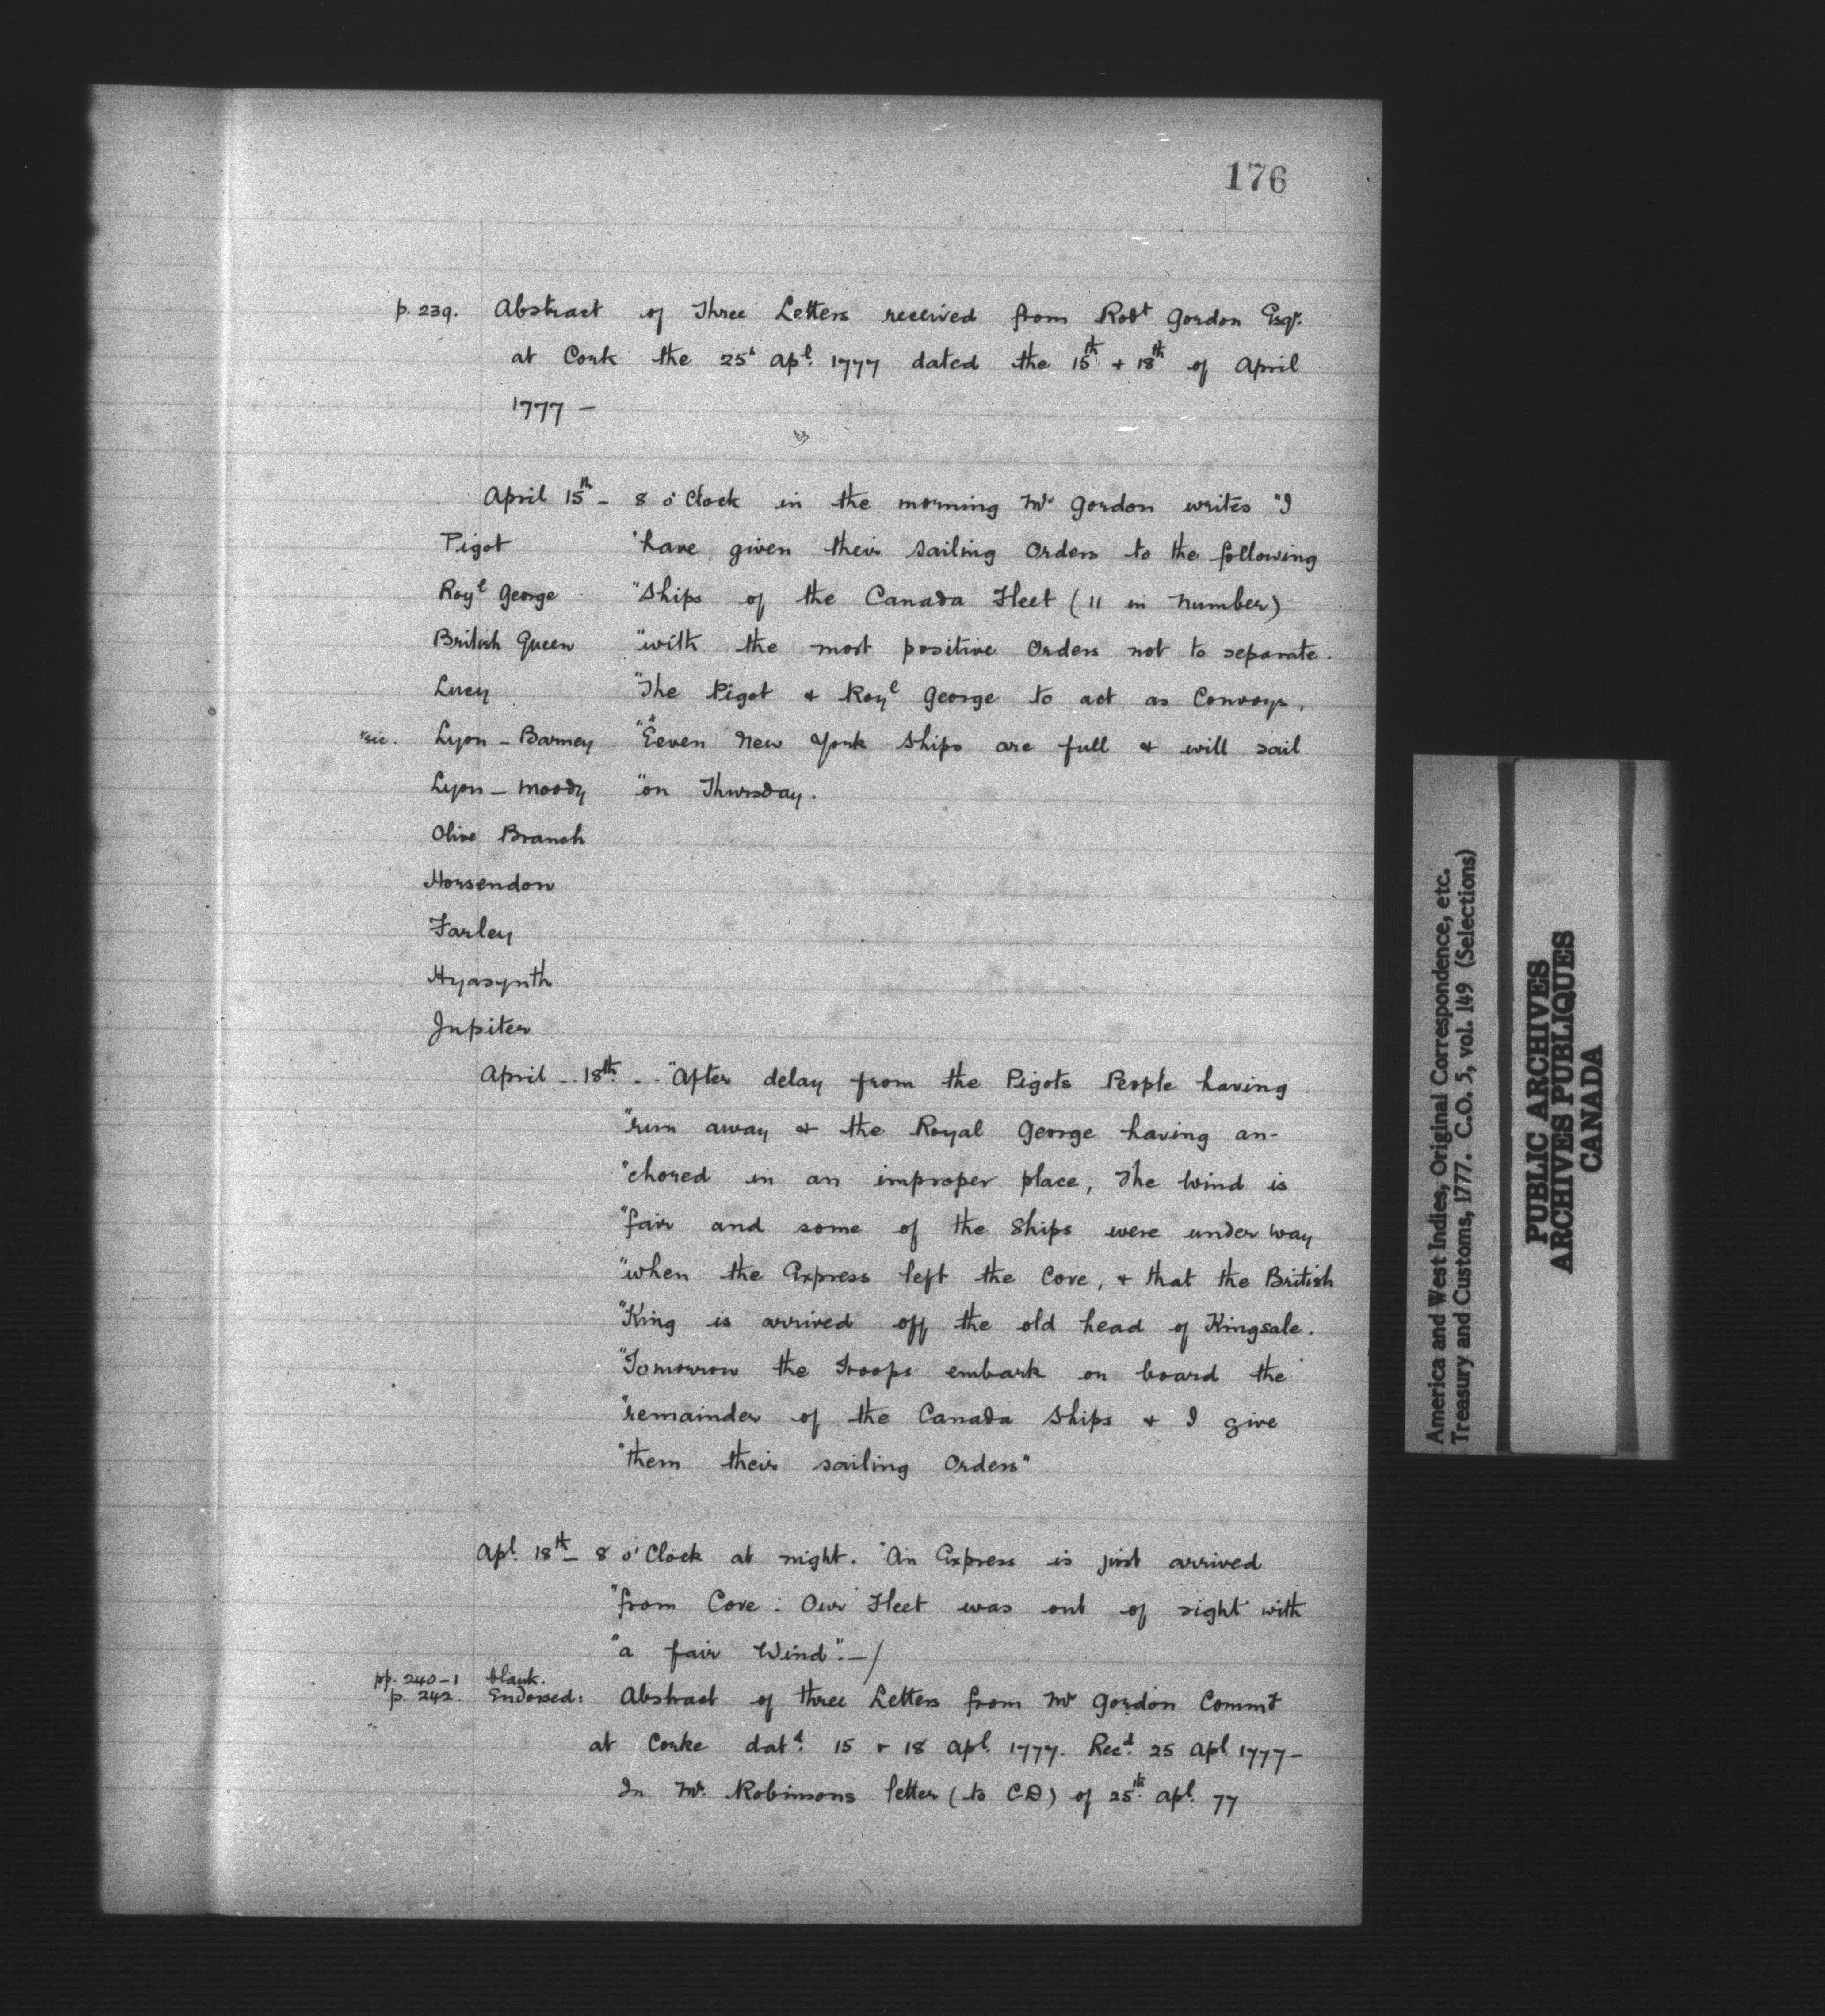 176
p. 239. Abstract of Three Letters received from Robt Gordon Esqr.
at Cork the 25t Apl. 1777 dated the 15th + 18th of April
1777 —
April 15th — 8 o'Clock in the morning Mr Gordon writes "I
Pigot "have given their sailing Orders to the following
Royl George "Ships of the Canada Fleet (11 in Number)
British Queen "with the most positive Orders not to separate.
Lucy "The Pigot & Royl George to act as Convoys.
*sic. Lyon — Barney "*Eeven New York Ships are full & will sail
Lyon — Moody "on Thursday.
Olive Branch
Horsendon
Farley
Hyasynth
Jupiter
April .. 18th. .. "After delay from the Pigots People having
"run away & the Royal George having an-
"chored in an improper place, The Wind is
"fair and some of the Ships were under way
"when the Express left the Cove, + that the British
"King is arrived off the old head of Kingsale.
"Tomorrow the Troops embark on board the
"remainder of the Canada Ships + I give
"them their sailing Orders"
Apl. 18th — 8 o'Clock at night. "An Express is just arrived
"from Cove. Our Fleet was out of sight with
"a fair Wind".—/
pp. 240-1 blank.
p. 242. Endorsed: Abstract of three Letters from Mr Gordon Commt
at Corke datd. 15 + 18 Apl. 1777. Recd. 25 Apl 1777—
In Mr. Robinsons letter (to CD) of 25th. Apl. 77
America and West Indies, Original Correspondence, etc.
Treasury and Customs, 1777. C.O. 5, vol. 149 (Selections)
PUBLIC ARCHIVES
ARCHIVES PUBLIQUES
CANADA